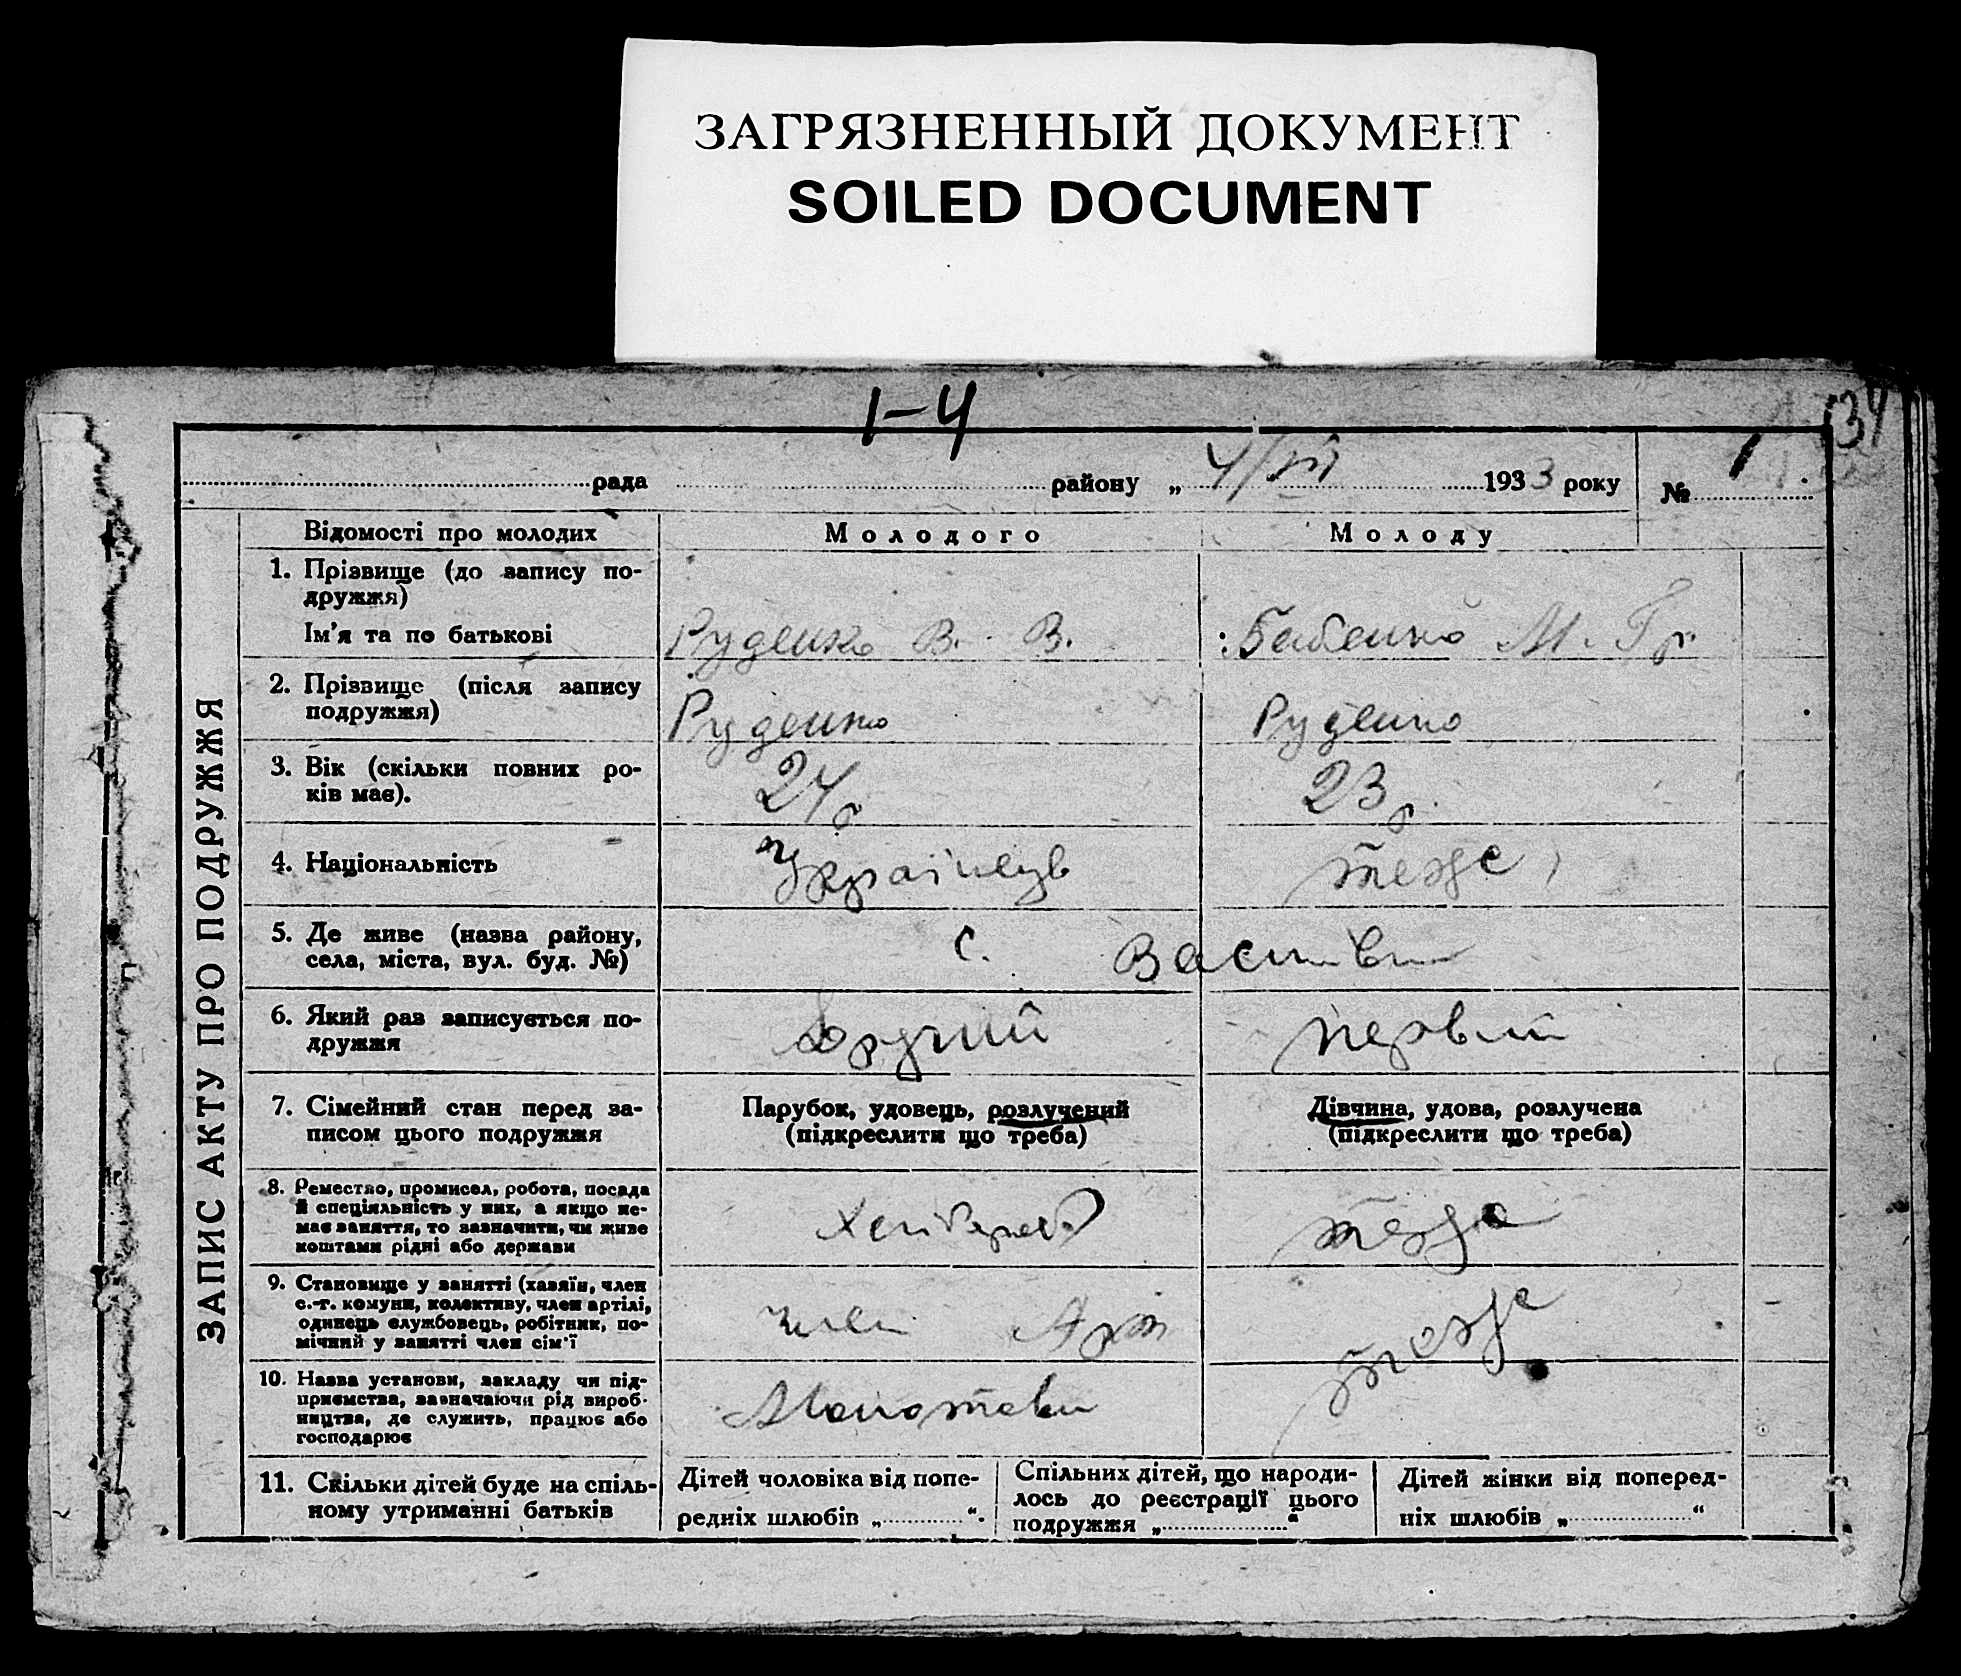 ЗАГРЯЗНЕННЫЙ ДОКУМЕНТ
SOILED DOCUMENT
1-4
34
рада району „ 4/III 1933 року № 1
ЗАПИС АКТУ ПРО ПОДРУЖЖЯ
Відомості про молодих Молодого Молоду
1. Прізвище (до запису по-
дружжя)
Ім'я та по батькові Руденко В. В. Бабенко М. Гр.
2. Прізвище (після запису
подружжя) Руденко Руденко
3. Вік (скільки повних ро-
ків має). 24 г 23 г.
4. Національність Українець теже
5. Де живе (назва району,
села, міста, вул. буд. №) с.
6. Який раз записується по-
дружжя Другий первий
7. Сімейний стан перед за-
писом цього подружжя
Парубок, удовець, розлучений
(підкреслити що треба)
Дівчина, удова, розлучена
(підкреслити що треба)
8. Ремество, промисел, робота, посада
й спеціяльність у них, а якщо не-
має заняття, то зазначити, чи живе
коштами рідні або держави
Хлібороб теже
9. Становище у занятті (хазяїн, член
с.-г. комуни, колективу, член артілі,
одинець службовець, робітник, по-
мічний у занятті член сім'ї
член Арт теже
10. Назва установи, закладу чи під-
приємства, зазначаючи рід вироб-
ництва, де служить, працює або
господарює
11. Скільки дітей буде на спіль-
ному утриманні батьків
Дітей чоловіка від попе-
редніх шлюбів „ “.
Спільних дітей, що народи-
лось до реєстрації цього
подружжя „ “
Дітей жінки від поперед-
ніх шлюбів „ “